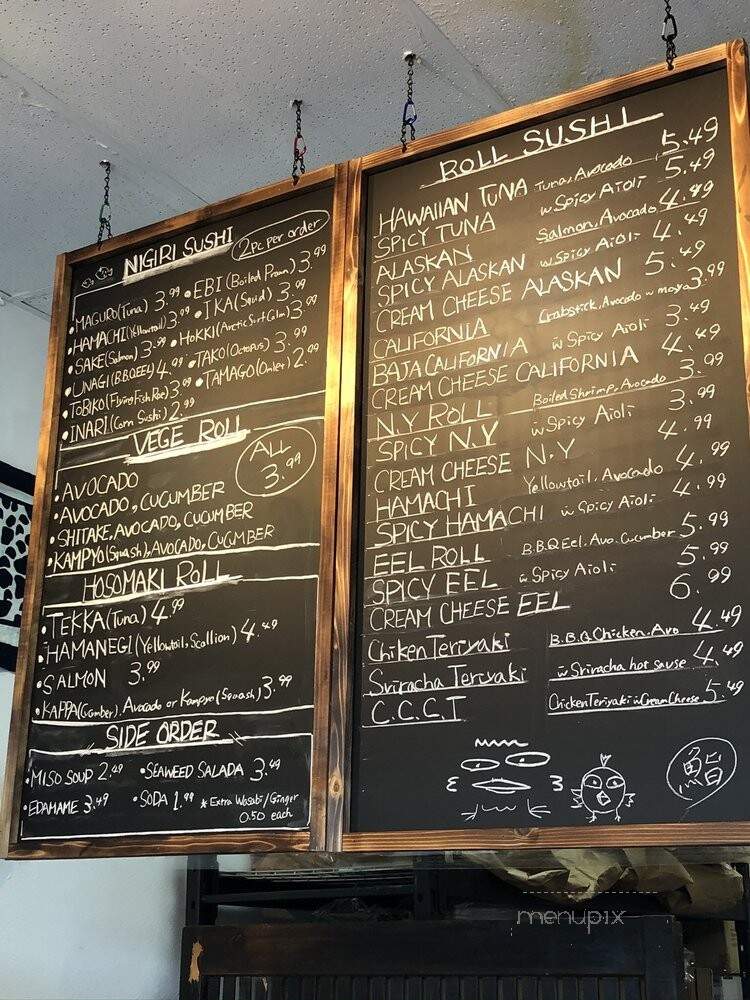 NIGIRI SUSHI
2pc per order
• MAGURO(Tuna) 3.99 • EBI (Boiled Prawn) 3.99
• HAMACHI(Yellowtail) 3.99 • IKA (Squid) 3.99
• SAKE (Salmon) 3.99 • HOKKI (Arctic Surf Calm) 3.99
• UNAGI (B.B.Q EEL) 4.99 • TAKO (Octopus) 3.99
• TOBIKO (Flying Fish Roe) 3.99 • TAMAGO (Omlet) 2.99
• INARI (Corn Sushi) 2.99
VEGE ROLL
ALL
3.99
• AVOCADO
• AVOCADO, CUCUMBER
• SHITAKE, AVOCADO, CUCUMBER
• KAMPYO (Squash), AVOCADO, CUCUMBER
HOSOMAKI ROLL
• TEKKA (Tuna) 4.99
• HAMANEGI (Yellowtail, Scallion) 4.49
• SALMON 3.99
• KAPPA (Cucumber), Avocado or Kampyo (Squash) 3.99
SIDE ORDER
• MISO SOUP 2.49 • SEAWEED SALADA 3.49
• EDAMAME 3.49 • SODA 1.99 * Extra Wasabi/Ginger
0.50 each
ROLL SUSHI
HAWAIIAN TUNA Tuna, Avocado 5.49
SPICY TUNA w Spicy Aioli 5.49
ALASKAN Salmon, Avocado 4.49
SPICY ALASKAN w Spicy Aioli 4.49
CREAM CHEESE ALASKAN 5.49
CALIFORNIA Crabstick, Avocado w mayo 3.99
BAJA CALIFORNIA w Spicy Aioli 3.49
CREAM CHEESE CALIFORNIA 4.49
N.Y ROLL Boiled Shrimp, Avocado 3.99
SPICY N.Y w Spicy Aioli 3.99
CREAM CHEESE N.Y 4.99
HAMACHI Yellowtail, Avocado 4.99
SPICY HAMACHI w Spicy Aioli 4.99
EEL ROLL B.B.Q Eel, Avo. Cucumber 5.99
SPICY EEL w Spicy Aioli 5.99
CREAM CHEESE EEL 6.99
Chiken Teriyaki B.B.Q Chicken, Avo 4.49
Sriracha Teriyaki w Sriracha hot sause 4.49
C.C.C.T Chicken Teriyaki w Cream Cheese 5.49
鮨
menupix